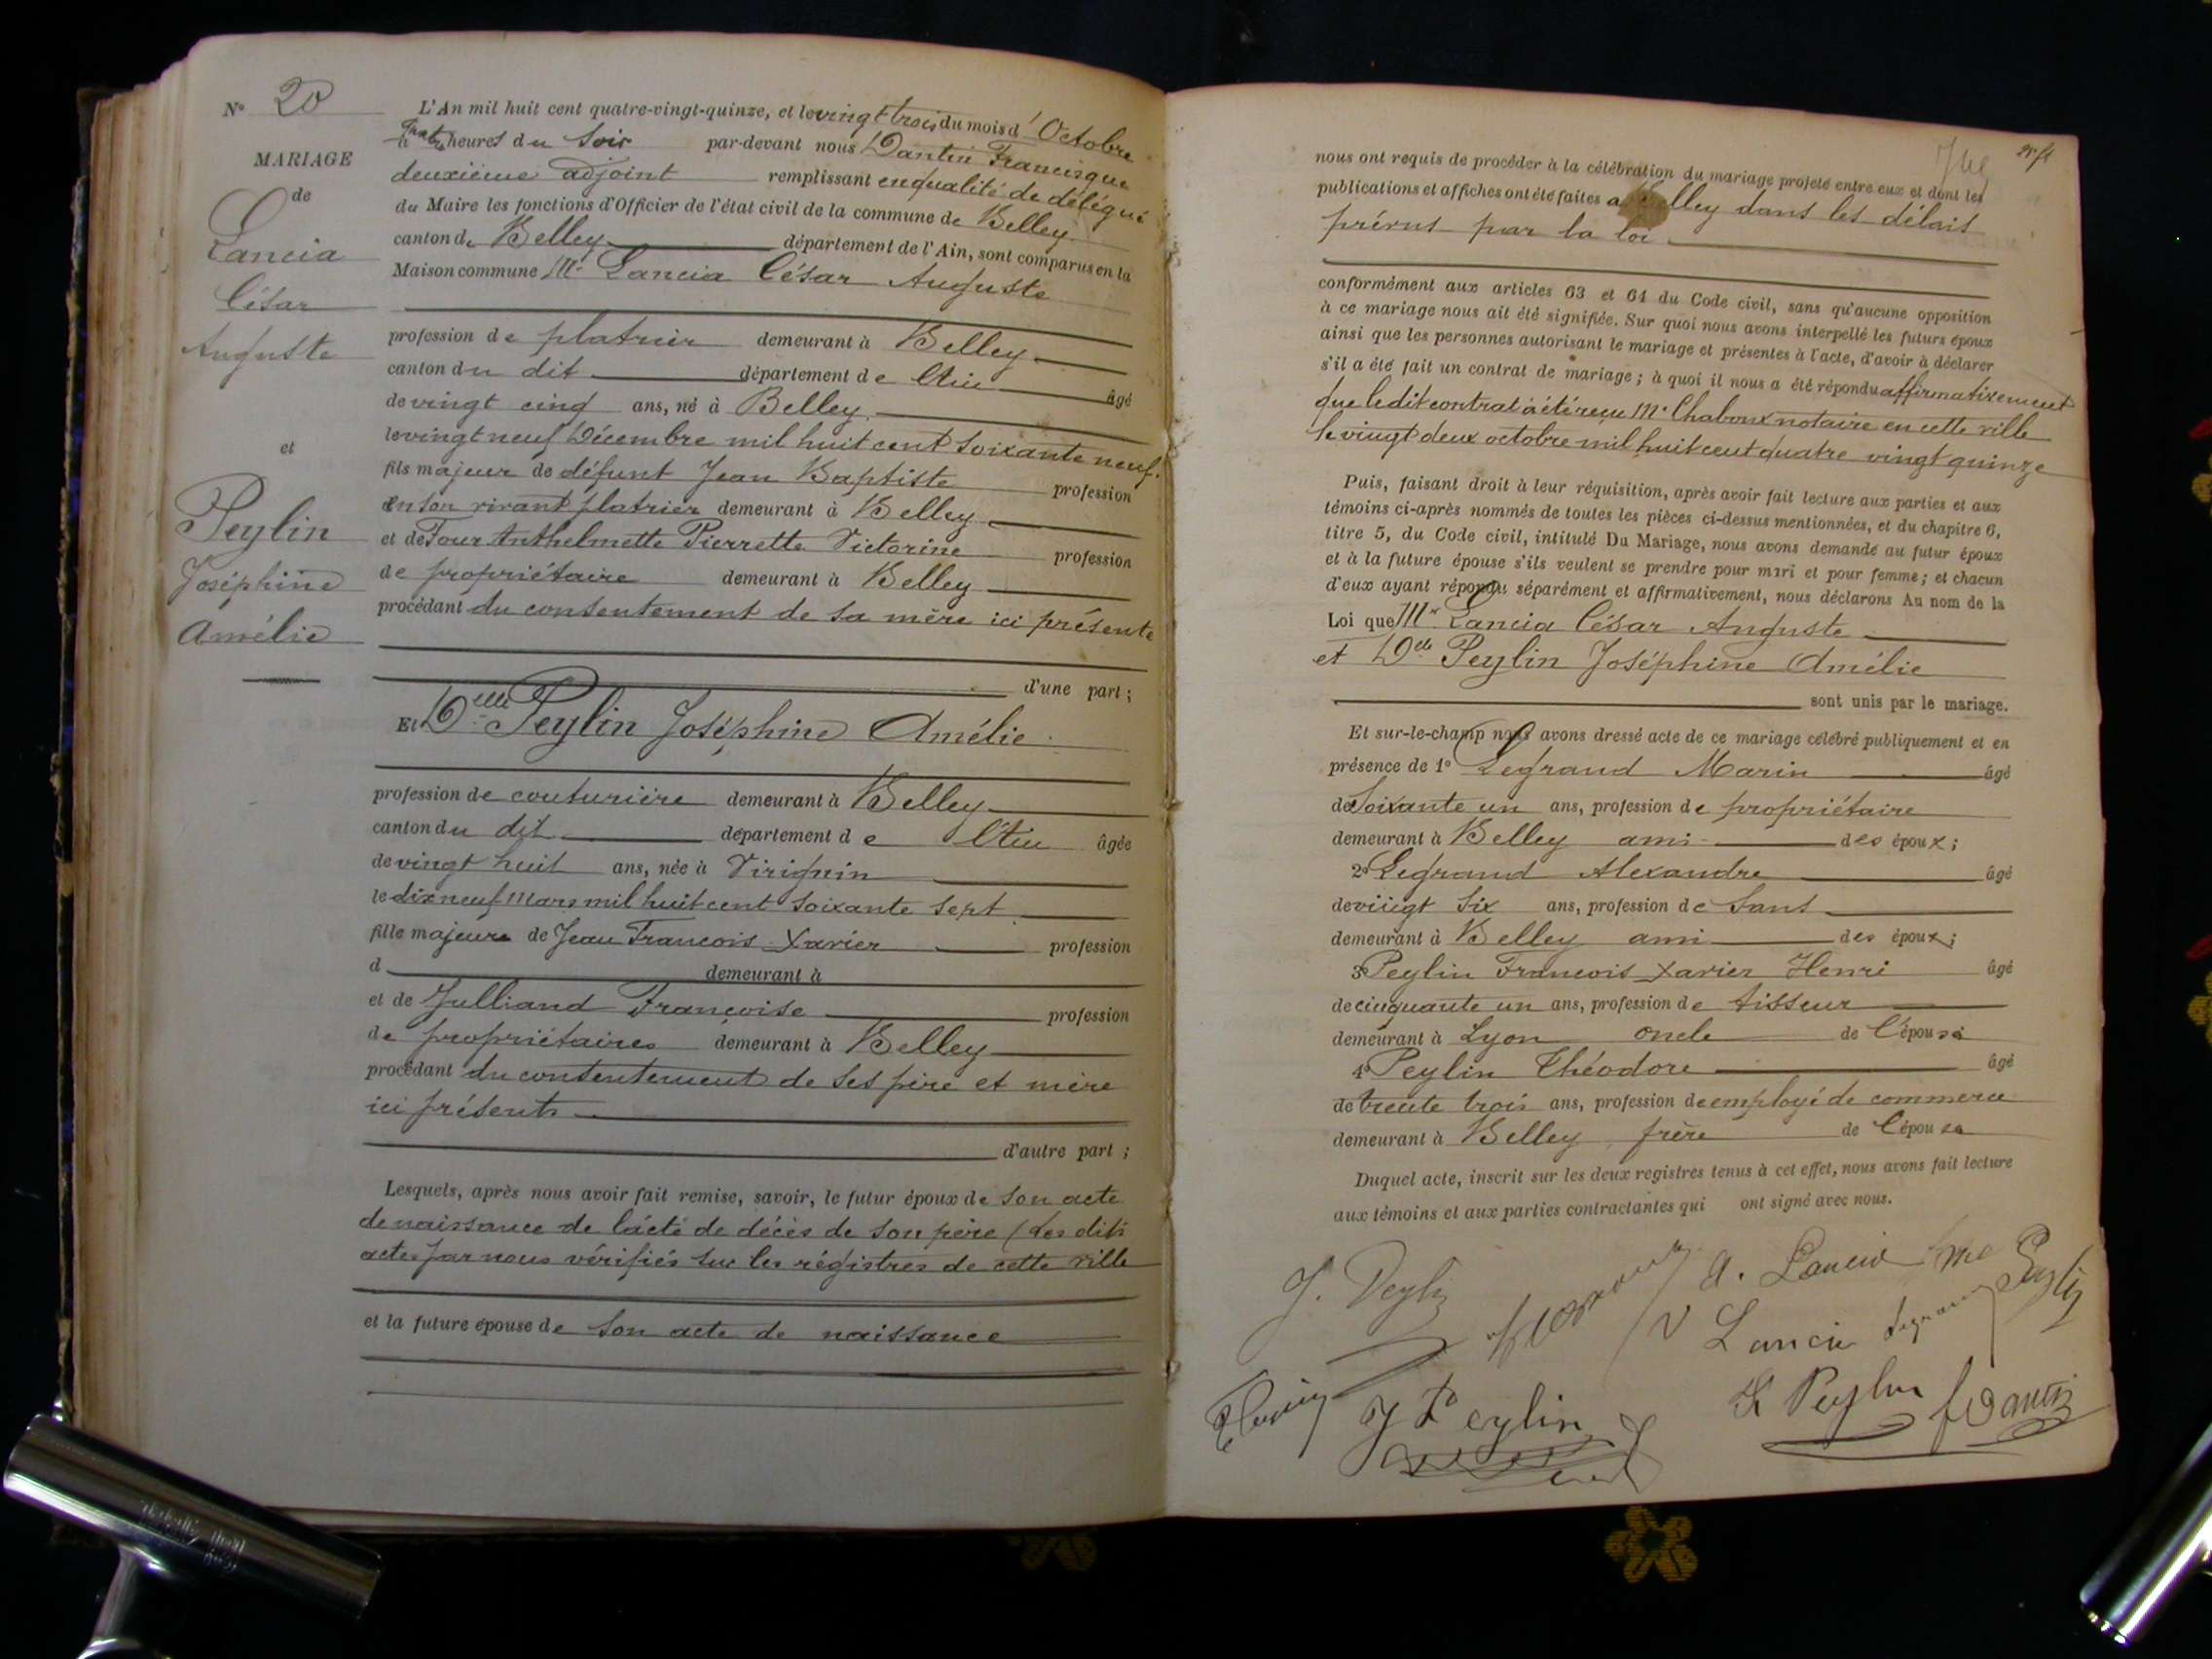 N° 20
MARIAGE
de
Lancia
César
Auguste
et
Peylin
Joséphine
Amélie
L'An mil huit cent quatre-vingt-quinze, et le vingt trois du mois d'Octobre
à quatre heures du soir par-devant nous Dantin Francisque
deuxième adjoint remplissant en qualité de délégué
du Maire les fonctions d'Officier de l'état civil de la commune de Belley
canton de Belley département de l'Ain, sont comparus en la
Maison commune Mr Lancia César Auguste
profession de platrier demeurant à Belley
canton du dit département de l'Ain âgé
de vingt cinq ans, né à Belley
le vingt neuf Décembre mil huit cent soixante neuf.
fils majeur de défunt Jean Baptiste profession
en son vivant platrier demeurant à Belley
et de Four Anthelmette Pierrette Victorine profession
de propriétaire demeurant à Belley
procédant du consentement de sa mère ici présente
d'une part ;
Et Delle Peylin Joséphine Amélie
profession de couturière demeurant à Belley
canton du dit département de l'Ain âgée
de vingt huit ans, née à Virignin
le dix neuf Mars mil huit cent soixante sept
fille majeure de Jean Francois Xavier profession
d demeurant à
et de Julliand Françoise profession
de propriétaires demeurant à Belley
procédant du consentement de ses père et mère
ici présents
d'autre part ;
Lesquels, après nous avoir fait remise, savoir, le futur époux de son acte
de naissance de l'acte de décès de son père (les dits
actes par nous vérifiés sur les régistres de cette ville
et la future épouse de son acte de naissance
nous ont requis de procéder à la célébration du mariage projeté entre eux et dont les
publications et affiches ont été faites à Belley dans les délais
prévus par la loi
conformément aux articles 63 et 64 du Code civil, sans qu'aucune opposition
à ce mariage nous ait été signifiée. Sur quoi nous avons interpellé les futurs époux
ainsi que les personnes autorisant le mariage et présentes à l'acte, d'avoir à déclarer
s'il a été fait un contrat de mariage ; à quoi il nous a été répondu affirmativement
que le dit contrat a été reçu Me Chaboux notaire en cette ville
le vingt deux octobre mil huit cent quatre vingt quinze
Puis, faisant droit à leur réquisition, après avoir fait lecture aux parties et aux
témoins ci-après nommés de toutes les pièces ci-dessus mentionnées, et du chapitre 6,
titre 5, du Code civil, intitulé Du Mariage, nous avons demandé au futur époux
et à la future épouse s'ils veulent se prendre pour mari et pour femme ; et chacun
d'eux ayant répondu séparément et affirmativement, nous déclarons Au nom de la
Loi que Mr Lancia César Auguste
et Delle Peylin Joséphine Amélie
sont unis par le mariage.
Et sur-le-champ nous avons dressé acte de ce mariage célébré publiquement et en
présence de 1° Legrand Marin âgé
de soixante un ans, profession de propriétaire
demeurant à Belley ami des époux ;
2° Legrand Alexandre âgé
de vingt six ans, profession de sans
demeurant à Belley ami des époux ;
3° Peylin Francois Xavier Henri âgé
de cinquante un ans, profession de tisseur
demeurant à Lyon oncle de l'épouse
4° Peylin Théodore âgé
de trente trois ans, profession de employé de commerce
demeurant à Belley frère de l'épouse
Duquel acte, inscrit sur les deux registres tenus à cet effet, nous avons fait lecture
aux témoins et aux parties contractantes qui ont signé avec nous.
J. Peylin
A. Lancia
me Peylin
V Lancia
Legrand
J Peylin
X Peylin
f Dantin